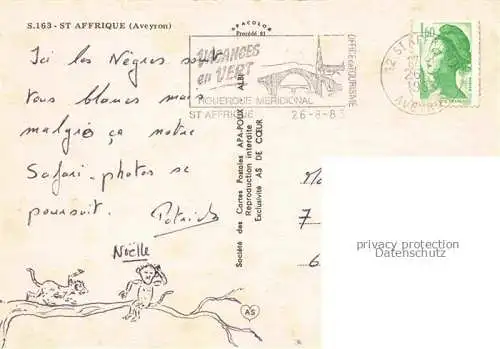 S.163 - ST AFFRIQUE (Aveyron)
APACOLOR
Procédé 61
Ici les Nègres sont
tous blancs mais
malgré ça notre
Safari-photos se
poursuit.
Patrick
Noëlle
VACANCES
en VERT
ROUERGUE MERIDIONAL
ST AFFRIQUE 26-8-83
OFFICE DE TOURISME
12 ST AFF
26
AVEYRON
1,60
Société des Cartes Postales APA-POUX - ALBI
Reproduction interdite
Exclusivité AS DE CŒUR
AS
7
6
privacy protection
Datenschutz